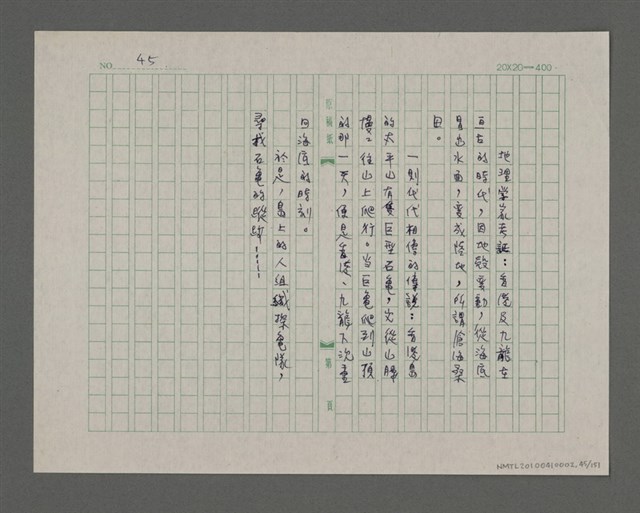 NO. 45
20X20=400
地理學家考証：香港及九龍在
亙古的時代，因地殼變動，從海底
冒出水面，變成陸地，所謂滄海桑
田。
一則代代相傳的傳說：香港島
的太平山有隻巨型石龜，它從山腳
慢慢往山上爬行。当巨龜爬到山頂
的那一天，便是香港、九龍下沉重
回海底的時刻。
於是，島上的人組織探龜隊，
尋找石龜的蹤跡……
原稿紙
第 頁
NMTL20100410002, 45/151